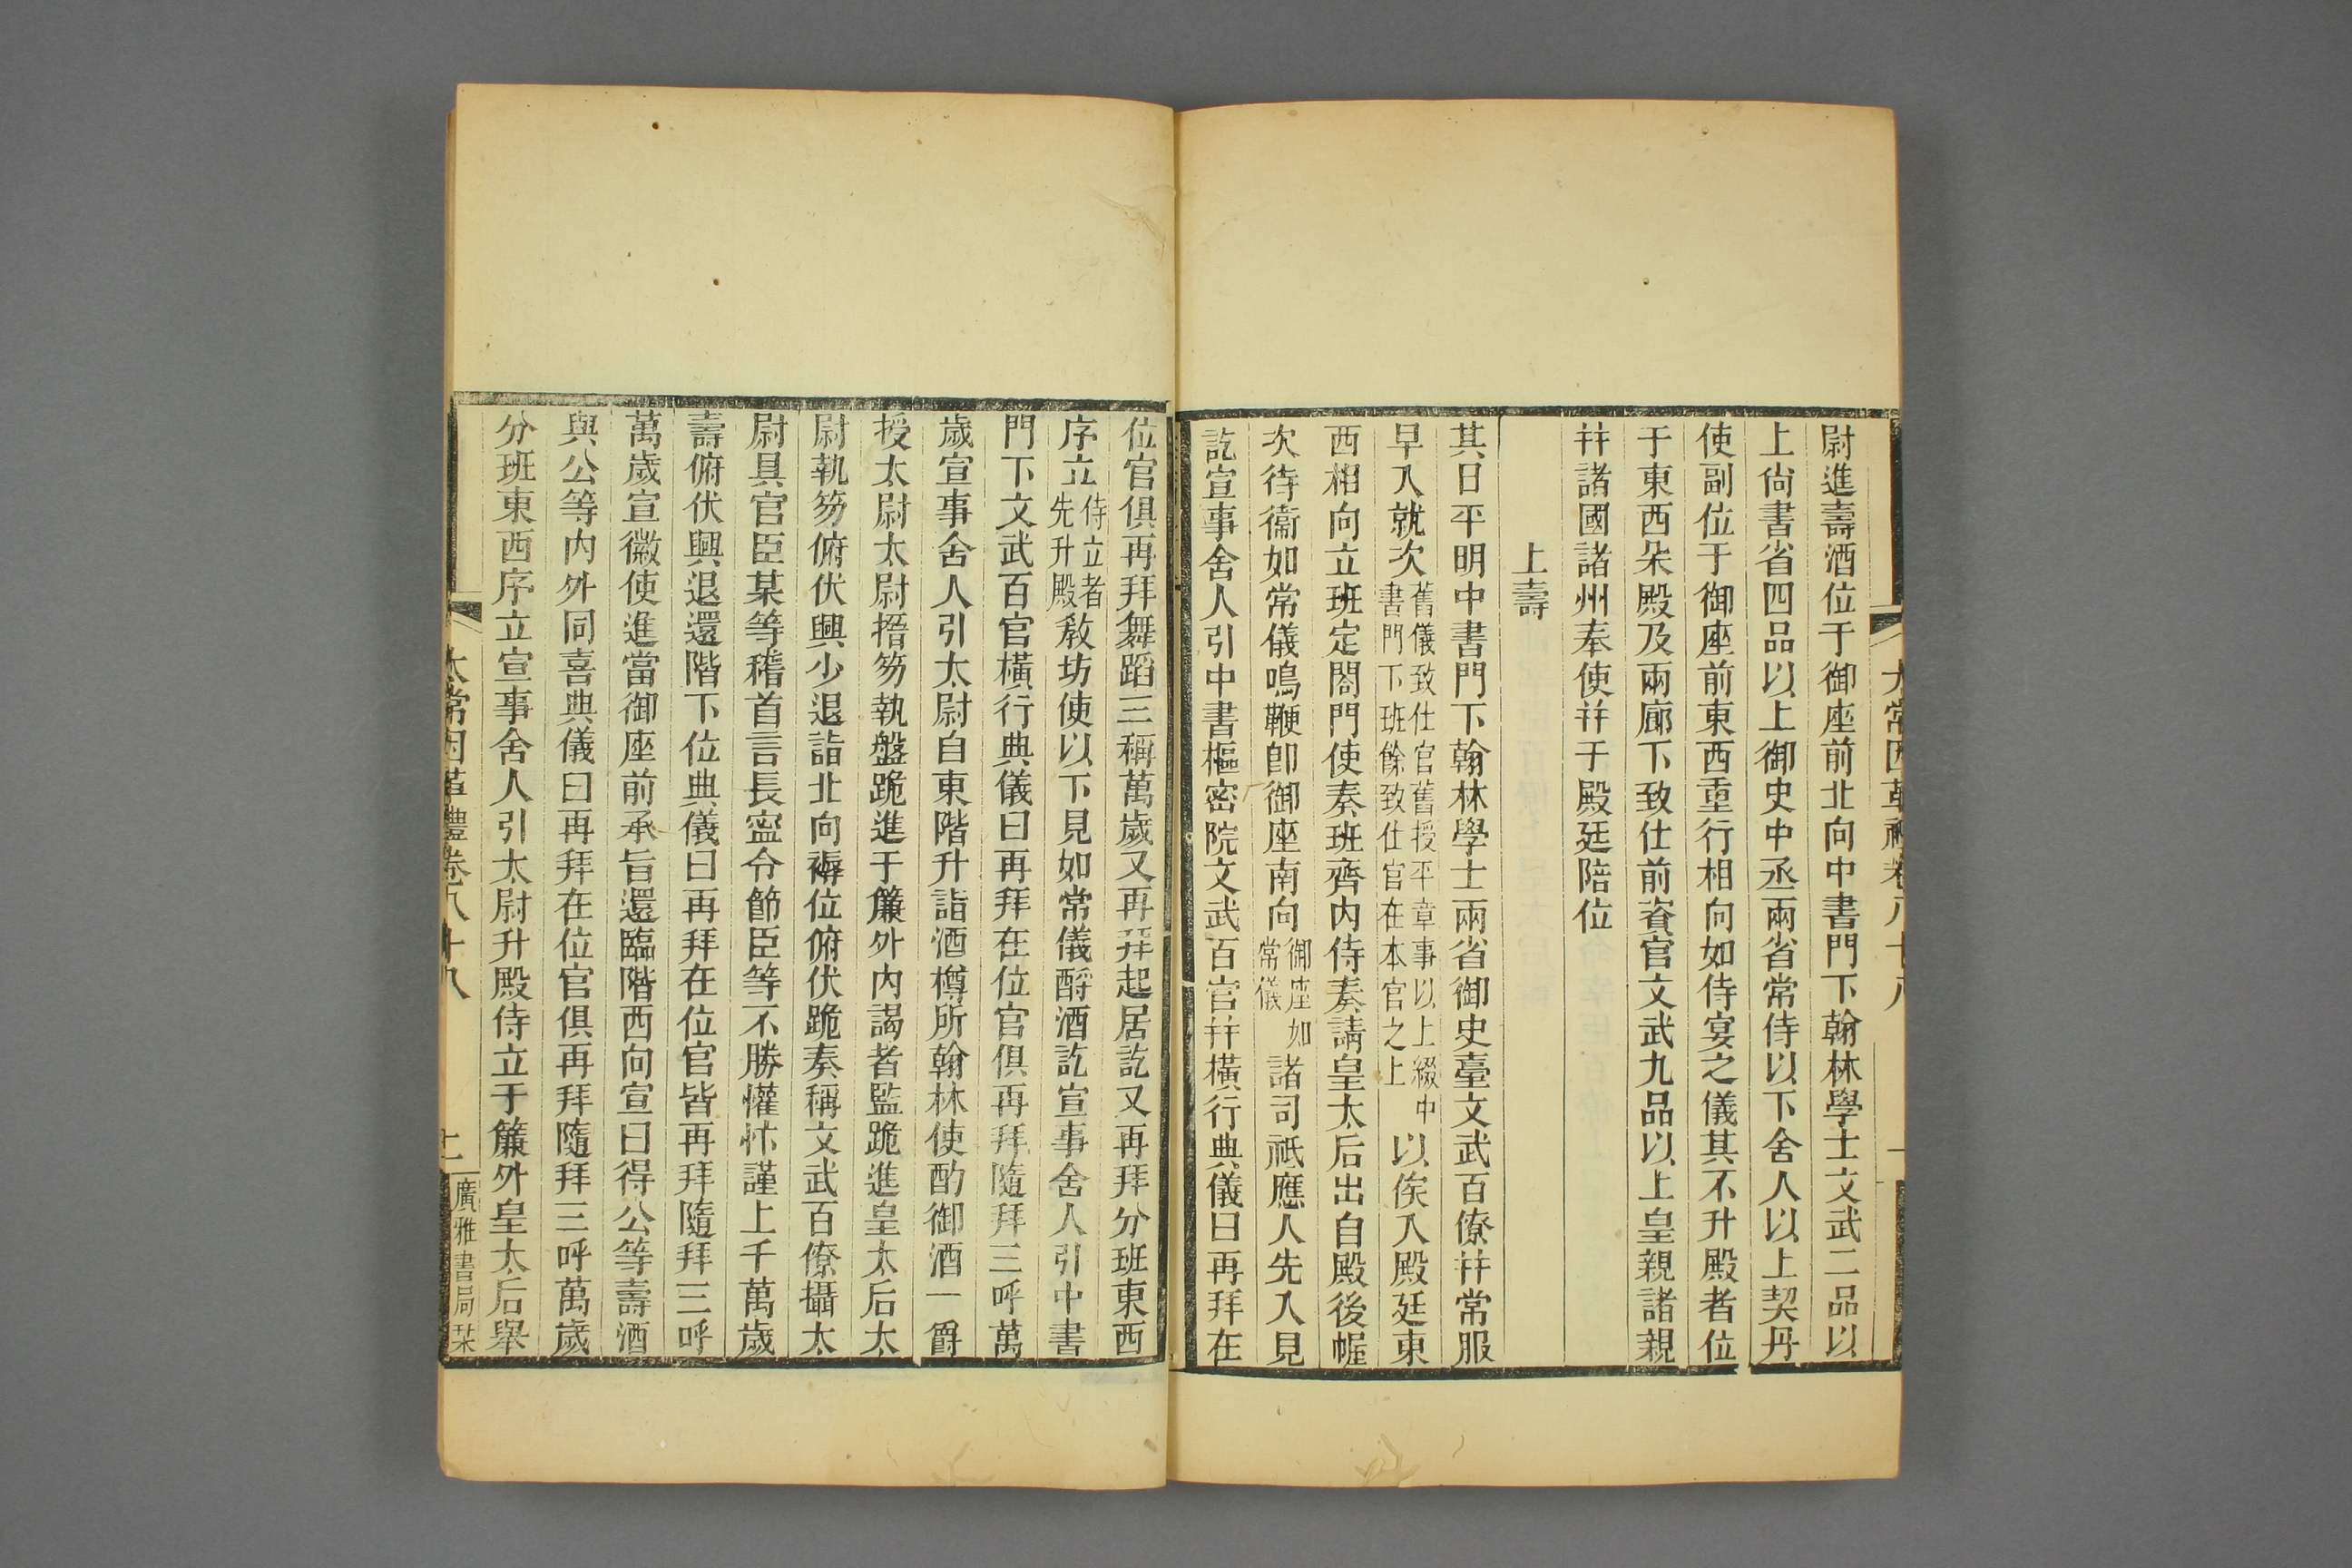 太常因革禮卷八十八
尉進壽酒位于御座前北向中書門下翰林學士文武二品以
上尚書省四品以上御史中丞兩省常侍以下舍人以上契丹
使副位于御座前東西重行相向如侍宴之儀其不升殿者位
于東西朵殿及兩廊下致仕前資官文武九品以上皇親諸親
并諸國諸州奉使并于殿廷陪位
上壽
其日平明中書門下翰林學士兩省御史臺文武百僚并常服
早入就次舊儀致仕官舊授平章事以上綴中書門下班餘致仕官在本官之上以俟入殿廷東
西相向立班定閤門使奏班齊內侍奏請皇太后出自殿後幄
次待衞如常儀鳴鞭卽御座南向御座如常儀諸司祗應人先入見
訖宣事舍人引中書樞密院文武百官并橫行典儀曰再拜在
位官俱再拜舞蹈三稱萬歲又再拜起居訖又再拜分班東西
序立侍立者先升殿敎坊使以下見如常儀酹酒訖宣事舍人引中書
門下文武百官橫行典儀曰再拜在位官俱再拜隨拜三呼萬
歲宣事舍人引太尉自東階升詣酒樽所翰林使酌御酒一爵
授太尉太尉搢笏執盤跪進于簾外內謁者監跪進皇太后太
尉執笏俯伏興少退詣北向褥位俯伏跪奏稱文武百僚攝太
尉具官臣某等稽首言長寍令節臣等不勝懽忭謹上千萬歲
壽俯伏興退還階下位典儀曰再拜在位官皆再拜隨拜三呼
萬歲宣徽使進當御座前承旨還臨階西向宣曰得公等壽酒
與公等內外同喜典儀曰再拜在位官俱再拜隨拜三呼萬歲
分班東西序立宣事舍人引太尉升殿侍立于簾外皇太后舉
太常因革禮卷八十八
二
廣雅書局栞